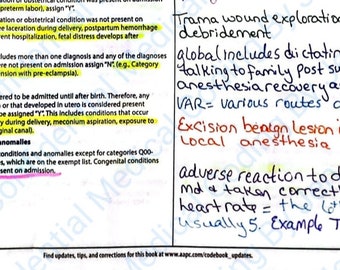 ation or obstetrical condition was present on
preterm labor), assign "Y".
ation or obstetrical condition was not present on
ee laceration during delivery, postpartum hemorrhage
ent hospitalization, fetal distress develops after
cludes more than one diagnosis and any of the diagnoses
ere not present on admission assign "N". (e.g., Category
ension with pre-eclampsia).
ered to be admitted until after birth. Therefore, any
h or that developed in utero is considered present
be assigned "Y". This includes conditions that occur
y during delivery, meconium aspiration, exposure to
ginal canal).
anomalies
conditions and anomalies except for categories Q00-
es, which are on the exempt list. Congenital conditions
sent on admission.
Find updates, tips, and corrections for this book at www.aapc.com/codebook_updates.
Trama wound exploration
debridement
global includes dictatin
talking to family post su
anesthesia recovery a
VAR= various routes o
Excision benign lesion i
local anesthesia
adverse reaction to d
md & taken correct
heart rate = the
usually 5. Example T